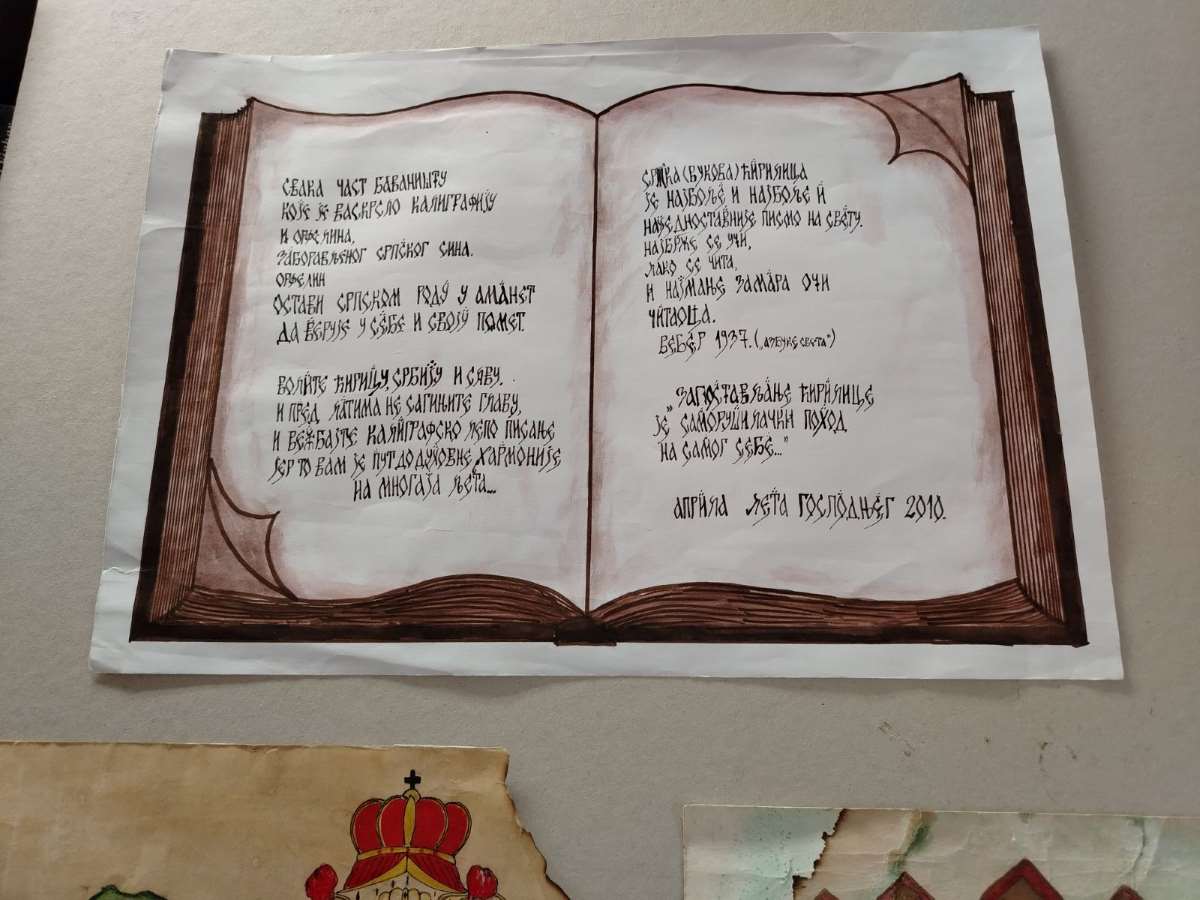 СВАКА ЧАСТ БАВАНИШТУ
КОЈЕ ЈЕ ВАСКРСЛО КАЛИГРАФИЈУ
И ОРФЕЛИНА,
ЗАБОРАВЉЕНОГ СРПСКОГ СИНА.
ОРФЕЛИН
ОСТАВИ СРПСКОМ РОДУ У АМАНЕТ
ДА ВЕРУЈЕ У СЕБЕ И СВОЈУ ПОМЕТ.
ВОЛИТЕ ЋИРИЦУ, СРБИЈУ И САВУ.
И ПРЕД ЛАТИМА НЕ САГИЊИТЕ ГЛАВУ,
И ВЕЖБАЈТЕ КАЛИГРАФСКО ЛЕПО ПИСАЊЕ
ЈЕР ТО ВАМ ЈЕ ПУТ ДО ДУХОВНЕ ХАРМОНИЈЕ
НА МНОГАЈА ЉЕТА...
СРПСКА (ВУКОВА) ЋИРИЛИЦА
ЈЕ НАЈБОЉЕ И НАЈБОЉЕ И
НАЈЈЕДНОСТАВНИЈЕ ПИСМО НА СВЕТУ.
НАЈБРЖЕ СЕ УЧИ,
ЛАКО СЕ ЧИТА,
И НАЈМАЊЕ ЗАМАРА ОЧИ
ЧИТАОЦА.
ВЕБЕР 1937. („АЗБУКЕ СВЕТА")
„ЗАПОСТАВЉАЊЕ ЋИРИЛИЦЕ
ЈЕ „САМОРУШИЛАЧКИ ПОХОД
НА САМОГ СЕБЕ..."
АПРИЛА ЉЕТА ГОСПОДЊЕГ 2010.